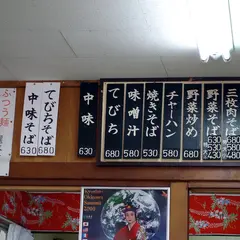 三枚肉そば
野菜そば
野菜炒め 580
チャーハン 580
焼きそば 580
味噌汁 580
てびち 680
中味 630
てびちそば 680
中味そば 630
Okinawa
Summit
2000